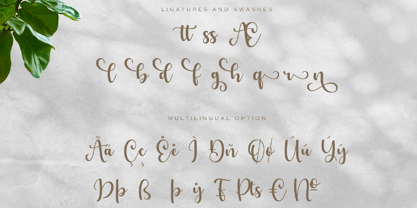 LIGATURES AND SWASHES
tt ss Æ
b d f g h q r n
MULTILINGUAL OPTION
Ãã Çç Ëë Ì Ðñ Øø Úú Ýý
Þþ ß þ ÿ ₣ ₧ € №